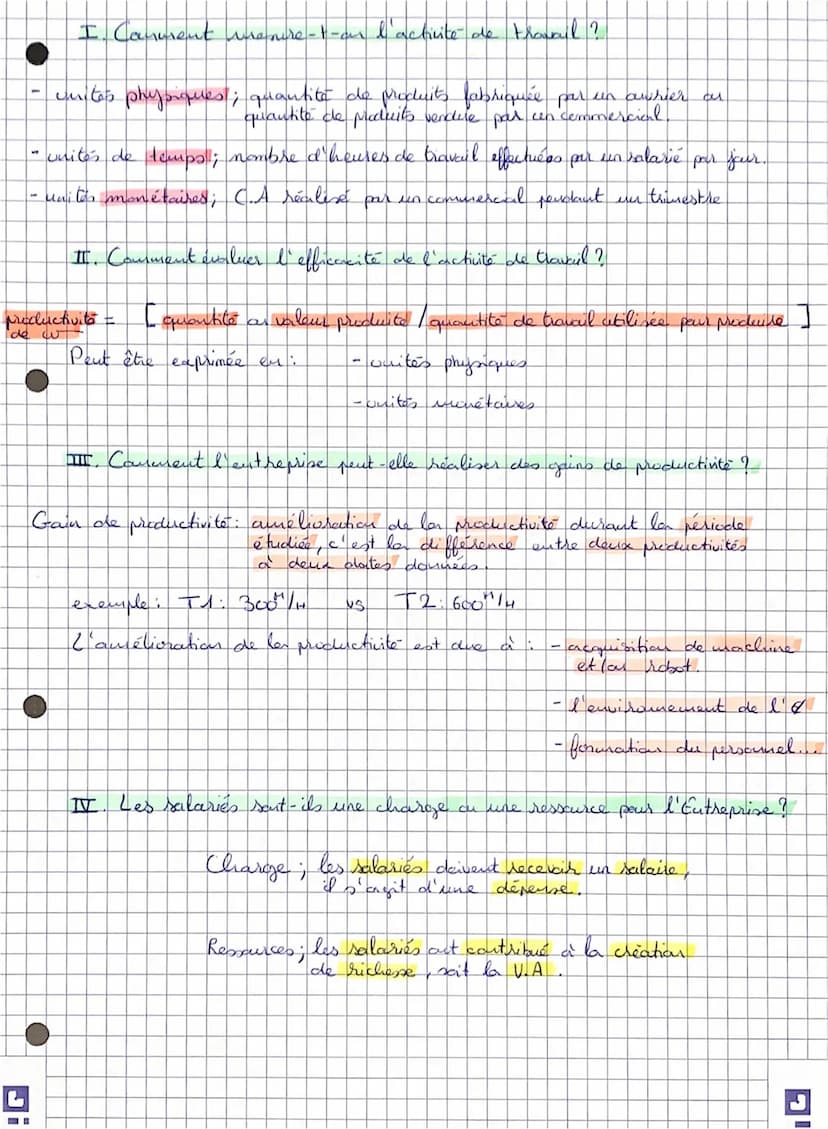 I. Comment mesure-t-on l'activité de travail ?
- unités physiques; quantité de produits fabriquée par un ouvrier ou
quantité de produits vendue par un commercial.
- unités de temps; nombre d'heures de travail effectuées par un salarié par jour.
- unités monétaires; C.A réalisé par un commercial pendant un trimestre
II. Comment évaluer l'efficacité de l'activité de travail ?
productivité = [quantité ou valeur produite / quantité de travail utilisée pour produire]
de w
Peut être exprimée en : - unités physiques
- unités monétaires
III. Comment l'entreprise peut-elle réaliser des gains de productivité ?
Gain de productivité : amélioration de la productivité durant la période
étudiée, c'est la différence entre deux productivités
à deux dates données.
exemple : T1 : 300 M/H vs T2 : 600 M/H
L'amélioration de la productivité est due à : - acquisition de machine
et/ou robot.
- l'environnement de l'E
- formation du personnel...
IV. Les salariés sont-ils une charge ou une ressource pour l'Entreprise ?
Charge ; les salariés doivent recevoir un salaire,
il s'agit d'une dépense.
Ressources ; les salariés ont contribué à la création
de richesse, soit la V.A.